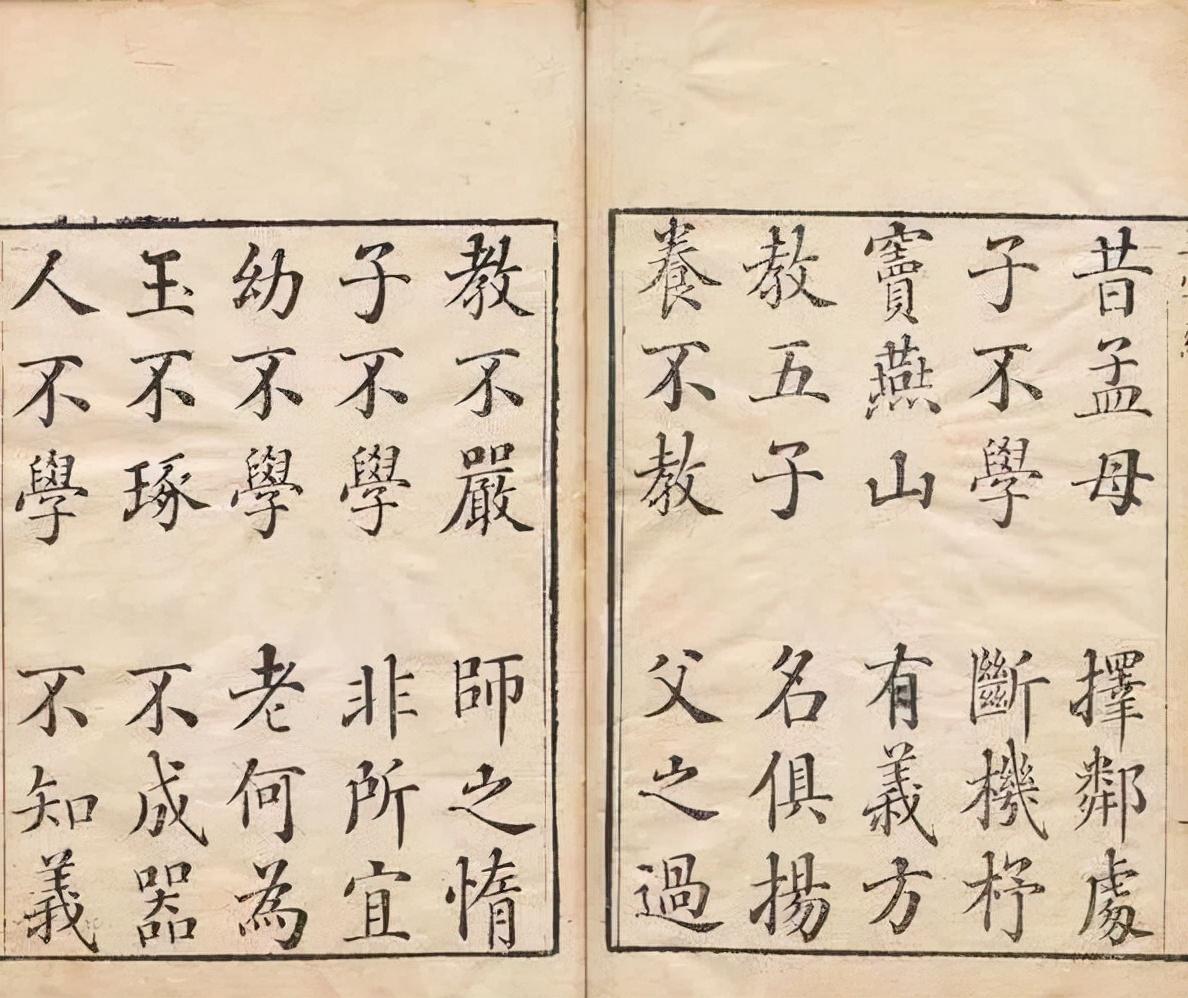 昔孟母 擇鄰處
子不學 斷機杼
竇燕山 有義方
教五子 名俱揚
養不教 父之過
教不嚴 師之惰
子不學 非所宜
幼不學 老何為
玉不琢 不成器
人不學 不知義